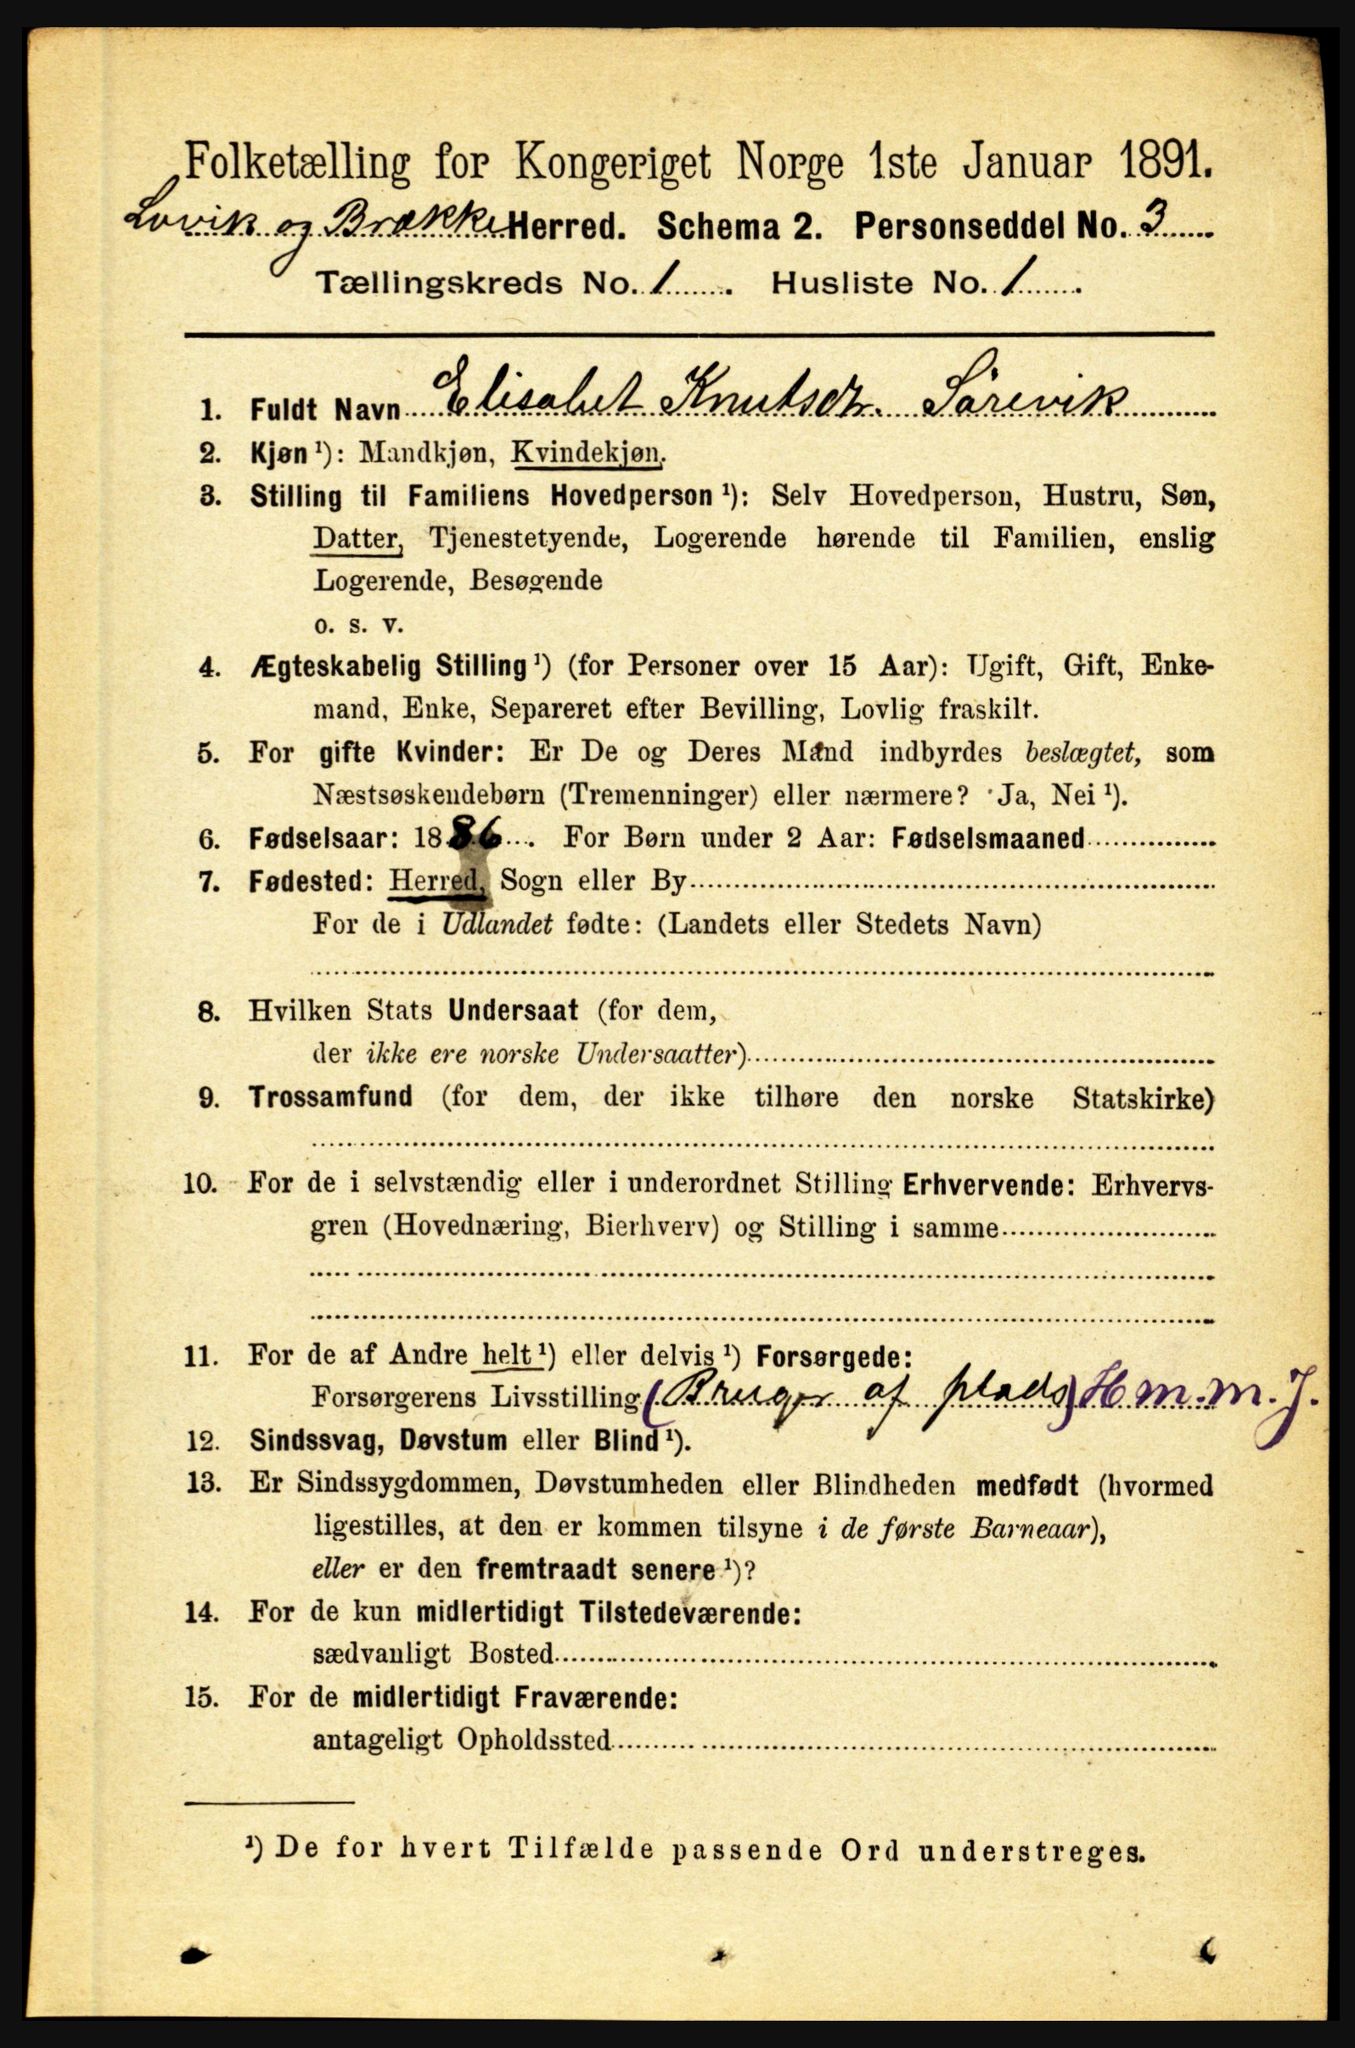 Folketælling for Kongeriget Norge 1ste Januar 1891.
Lavik og Brække Herred. Schema 2. Personseddel No. 3
Tællingskreds No. 1 Husliste No. 1
1. Fuldt Navn Elisabet Knutsdr. Sörevik
2. Kjøn ¹): Mandkjøn, Kvindekjøn.
3. Stilling til Familiens Hovedperson ¹): Selv Hovedperson, Hustru, Søn,
Datter, Tjenestetyende, Logerende hørende til Familien, enslig
Logerende, Besøgende
o. s. v.
4. Ægteskabelig Stilling ¹) (for Personer over 15 Aar): Ugift, Gift, Enke-
mand, Enke, Separeret efter Bevilling, Lovlig fraskilt.
5. For gifte Kvinder: Er De og Deres Mand indbyrdes beslægtet, som
Næstsøskendebørn (Tremenninger) eller nærmere? Ja, Nei ¹).
6. Fødselsaar: 1886. For Børn under 2 Aar: Fødselsmaaned
7. Fødested: Herred, Sogn eller By
For de i Udlandet fødte: (Landets eller Stedets Navn)
8. Hvilken Stats Undersaat (for dem,
der ikke ere norske Undersaatter)
9. Trossamfund (for dem, der ikke tilhøre den norske Statskirke)
10. For de i selvstændig eller i underordnet Stilling Erhvervende: Erhvervs-
gren (Hovednæring, Bierhverv) og Stilling i samme
11. For de af Andre helt ¹) eller delvis ¹) Forsørgede:
Forsørgerens Livsstilling (Bruger af plads) H m. m. J.
12. Sindssvag, Døvstum eller Blind ¹).
13. Er Sindssygdommen, Døvstumheden eller Blindheden medfødt (hvormed
ligestilles, at den er kommen tilsyne i de første Barneaar),
eller er den fremtraadt senere ¹)?
14. For de kun midlertidigt Tilstedeværende:
sædvanligt Bosted
15. For de midlertidigt Fraværende:
antageligt Opholdssted
¹) De for hvert Tilfælde passende Ord understreges.